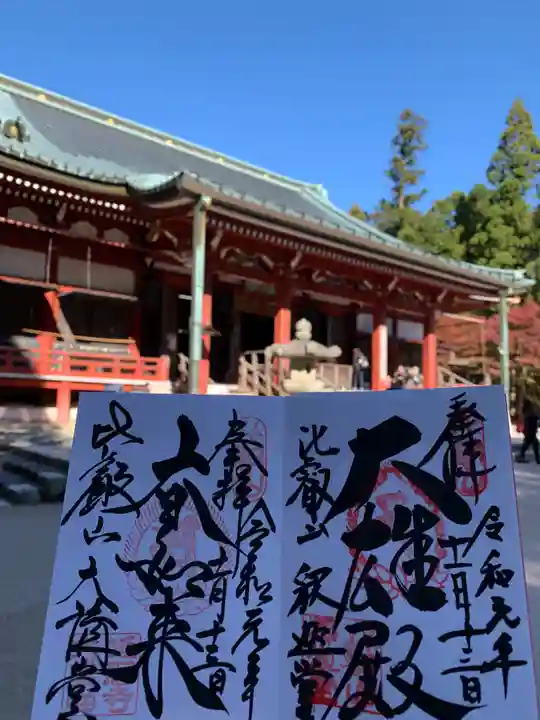 奉拝
令和元年
十一月十三日
大雄殿
比叡山
釈迦堂
奉拝
令和元年
十一月十三日
大日如来
比叡山
大講堂